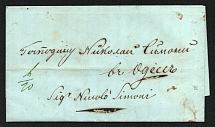 Господину Николай Симони
въ Одессѣ
Sigr Nicolò Simoni